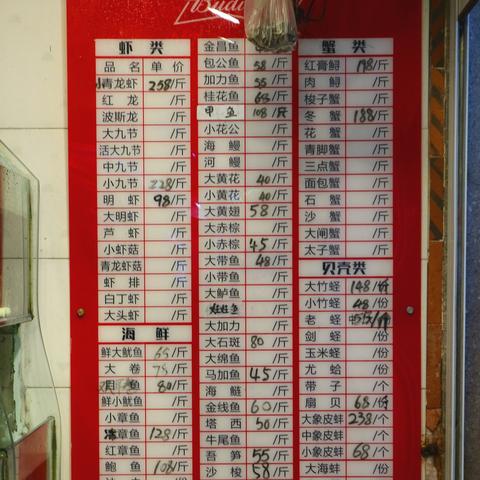 虾 类
品 名 单 价
小青龙虾 258/斤
红 龙 /斤
波斯龙 /斤
大九节 /斤
活大九节 /斤
中九节 /斤
小九节 228/斤
明 虾 98/斤
大明虾 /斤
芦 虾 /斤
小虾菇 /斤
青龙虾菇 /斤
虾 排 /斤
白丁虾 /斤
大头虾 /斤
海 鲜
鲜大鱿鱼 68/斤
大 卷 78/斤
鱼 80/斤
鲜小鱿鱼 /斤
小章鱼 /斤
章鱼 128/斤
红章鱼 /斤
鲍 鱼 108/斤
金昌鱼 /斤
包公鱼 58/斤
加力鱼 55/斤
桂花鱼 68/斤
甲 鱼 108/斤
小花公 /斤
海 鳗 /斤
河 鳗 /斤
大黄花 40/斤
小黄花 40/斤
大黄翅 58/斤
大赤棕 /斤
小赤棕 45/斤
大带鱼 48/斤
小带鱼 /斤
大鲈鱼 /斤
鱼 /斤
大加力 /斤
大石斑 80/斤
大绵鱼 /斤
马加鱼 45/斤
海 鲢 /斤
金线鱼 60/斤
塔 西 50/斤
牛尾鱼 /斤
吾 笋 55/斤
沙 梭 58/斤
蟹 类
红膏蟳 198/斤
肉 蟳 /斤
梭子蟹 /斤
冬 蟹 188/斤
花 蟹 /斤
青脚蟹 /斤
三点蟹 /斤
面包蟹 /斤
石 蟹 /斤
沙 蟹 /斤
大闸蟹 /斤
太子蟹 /斤
贝壳类
大竹蛏 148/份
小竹蛏 48/份
老 蛏
剑 蛏 /份
玉米蛏 /份
尤 蛤 /份
带 子 /个
扇 贝 68/份
大象皮蚌 238/个
中象皮蚌 /个
小象皮蚌 68/个
大海蚌 /份